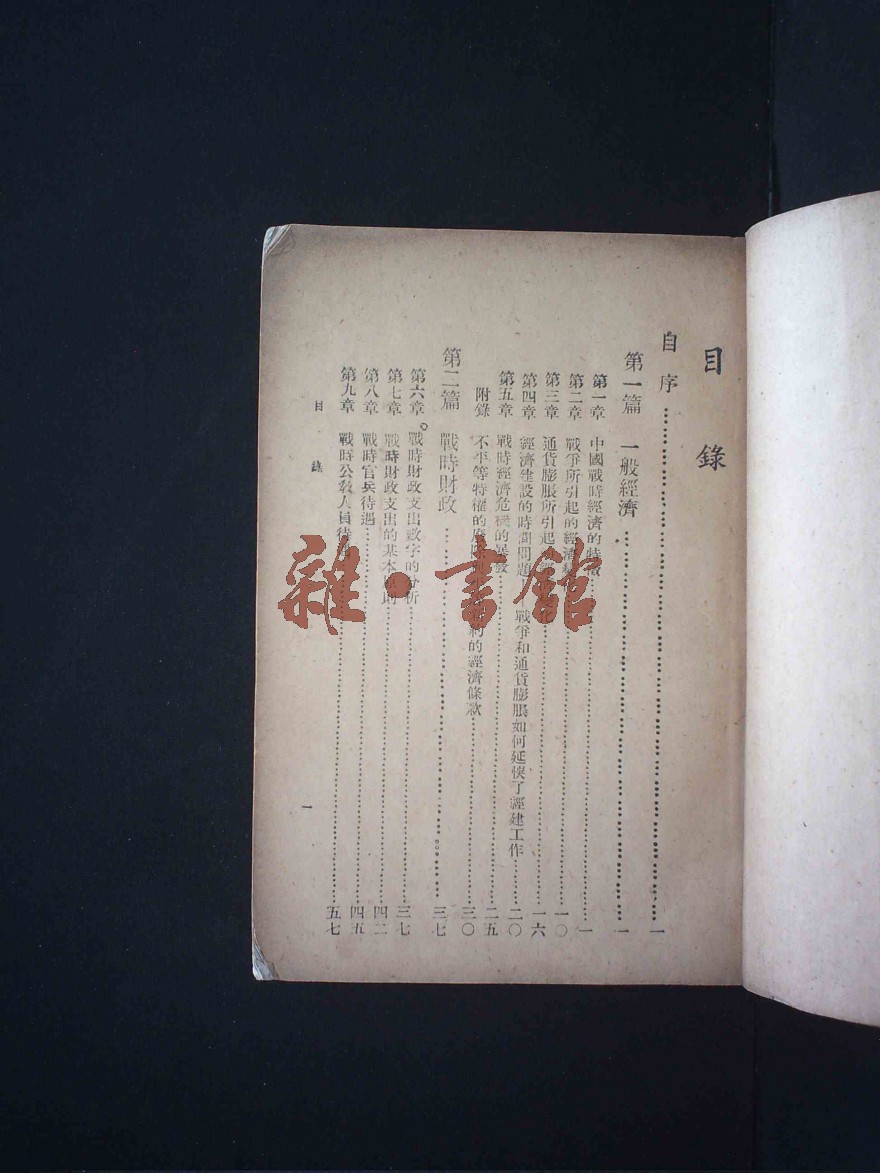 目錄
自序……一
第一篇 一般經濟……一
第一章 中國戰時經濟的特徵……一
第二章 戰爭所引起的經濟……一〇
第三章 通貨膨脹所引起……一六
第四章 經濟建設的時間問題——戰爭和通貨膨脹如何延悞了經建工作……二〇
第五章 戰時經濟危機的暴發……二五
附錄 不平等特權的廢 的經濟條款……三〇
第二篇 戰時財政……三七
第六章 戰時財政支出數字的分析……三七
第七章 戰時財政支出的基本 則……四二
第八章 戰時官兵待遇……四五
第九章 戰時公敎人員待……五七
目錄
一
雜·書館